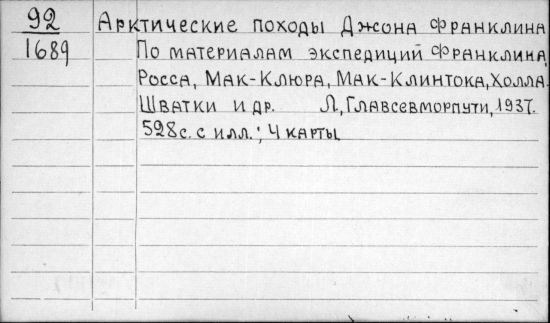 92 Арктические походы Джона Франклина
1689 По материалам экспедиций Франклина,
Росса, Мак-Клюра, Мак-Клинтока, Холла
Шватки и др. Л, Главсевморпути, 1937.
528с. с илл.; 4 карты